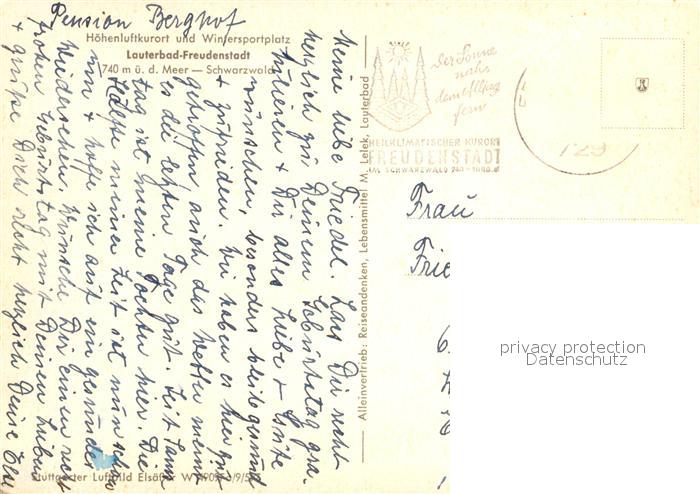 Pension Berghof
Höhenluftkurort und Wintersportplatz
Lauterbad-Freudenstadt
740 m ü. d. Meer — Schwarzwald
Meine liebe Friedel. Lass Dir recht
herzlich zu Deinem Geburtstag gra-
tulieren & Dir alles Liebe & Gute
wünschen, besonders bleibe gesund
& zufrieden. Wir haben es hier gut
getroffen, auch das Wetter meint
es die letzten Tage gut. Seit Sams-
tag ist meine Tochter hier. Die
Hälfte meiner Zeit ist nun schon
um & hoffe ich auf ein gesundes
Wiedersehen. Wünsche Dir einen recht
frohen Geburtstag mit Deinen Lieben
& grüße Dich recht herzlich Deine
Alleinvertrieb: Reiseandenken, Lebensmittel M. Lelek, Lauterbad
Der Sonne
nah
dem Alltag
fern
HEILKLIMATISCHER KURORT
FREUDENSTADT
IM SCHWARZWALD 740-1000 m
Frau
Frie
privacy protection
Datenschutz
Stuttgarter Luftbild Elsäßer